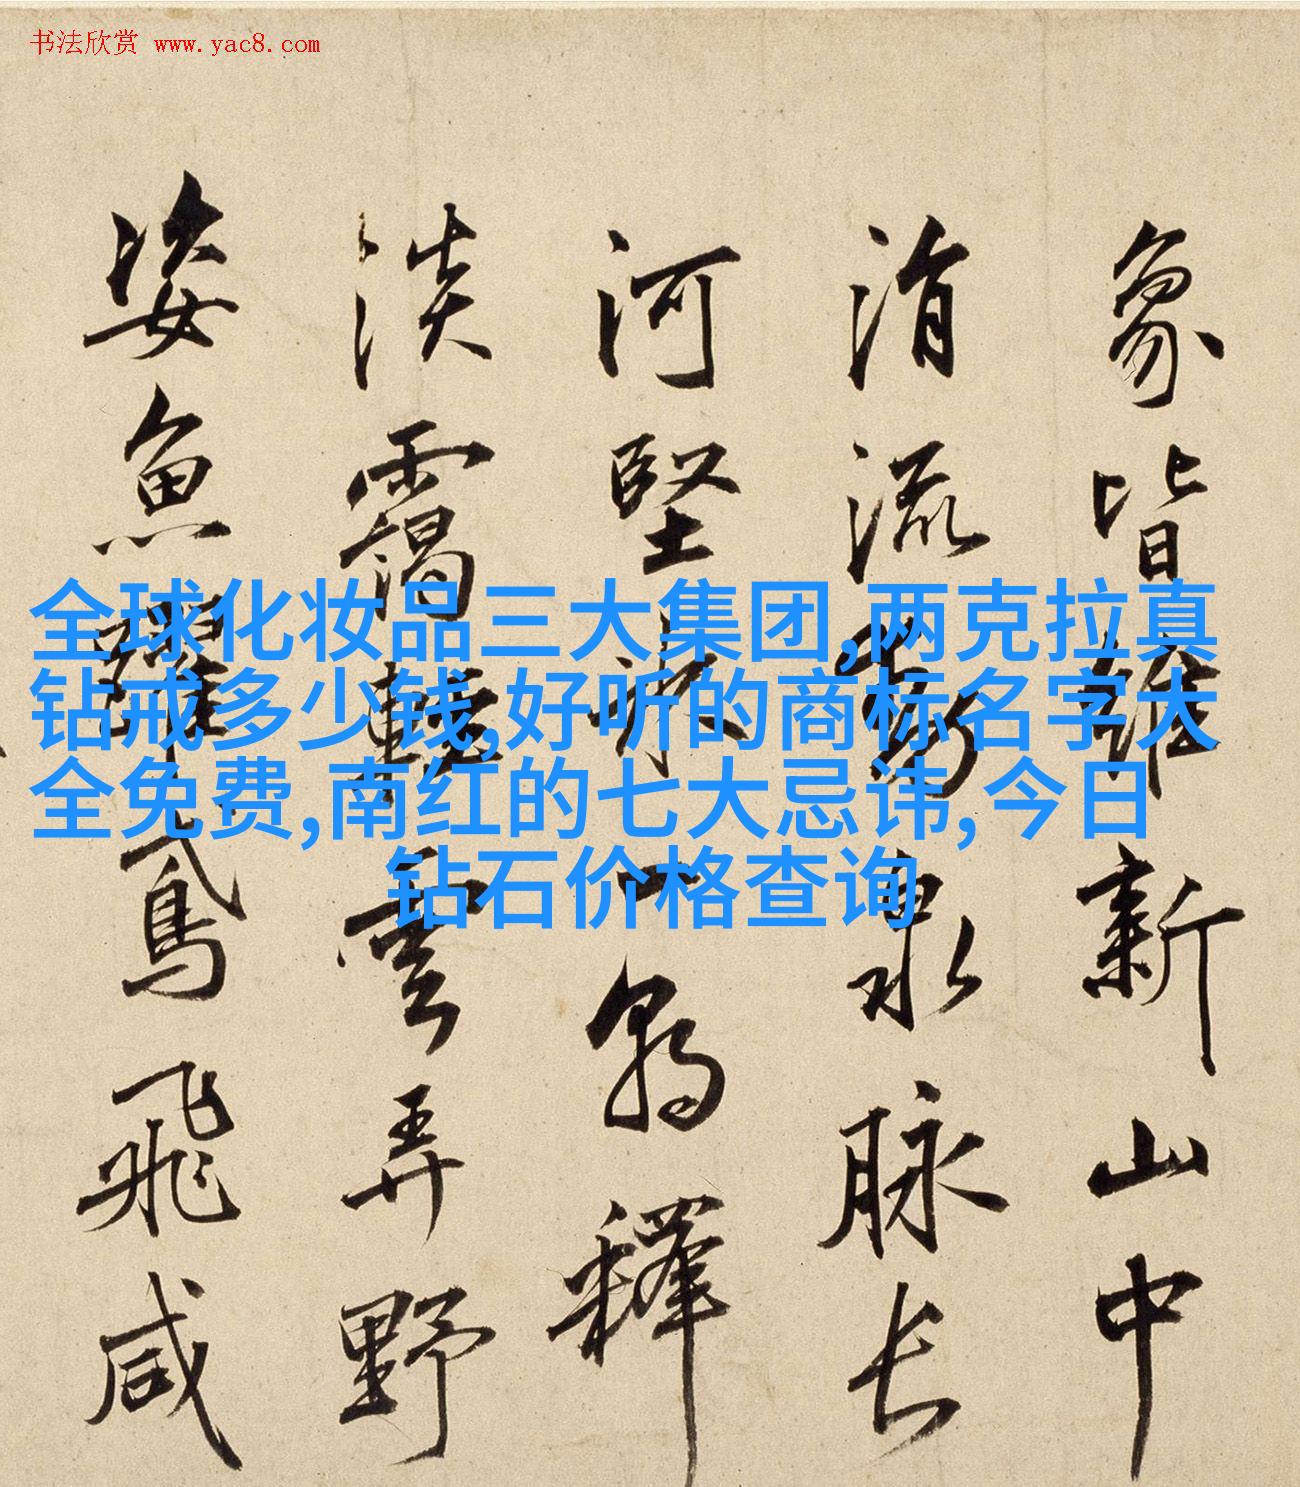 书法欣赏 www.yac8.com
全球化妆品三大集团,两克拉真
钻戒多少钱,好听的商标名字大
全免费,南红的七大忌讳,今日
钻石价格查询
象皆維新山中
涓流泉脉长
河堅氷一釋
淡靄輕雲弄野
姿魚躍鳶飛咸